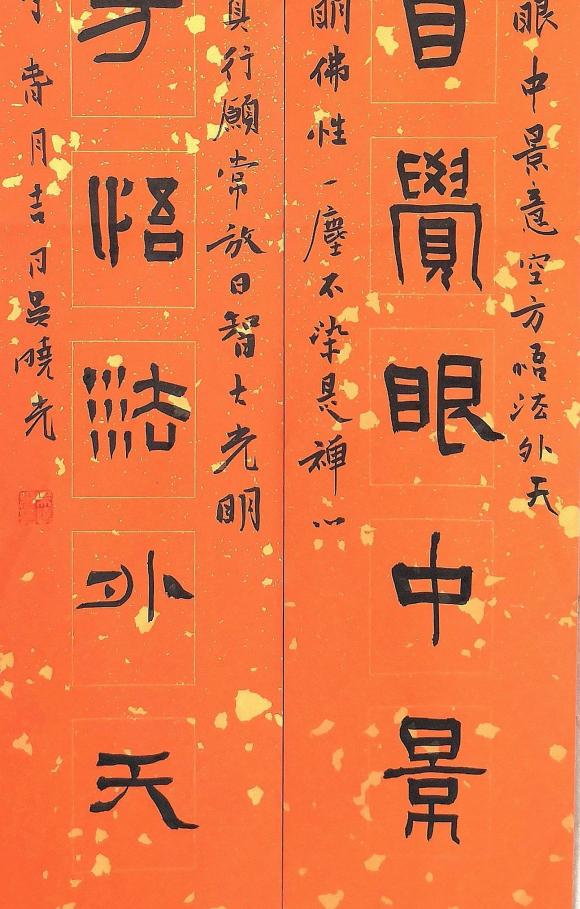 眼中景意空方悟法外天
自覺眼中景
明佛性一塵不染是禪心
真行願常放日智大光明
方悟法外天
春月吉日吳曉光